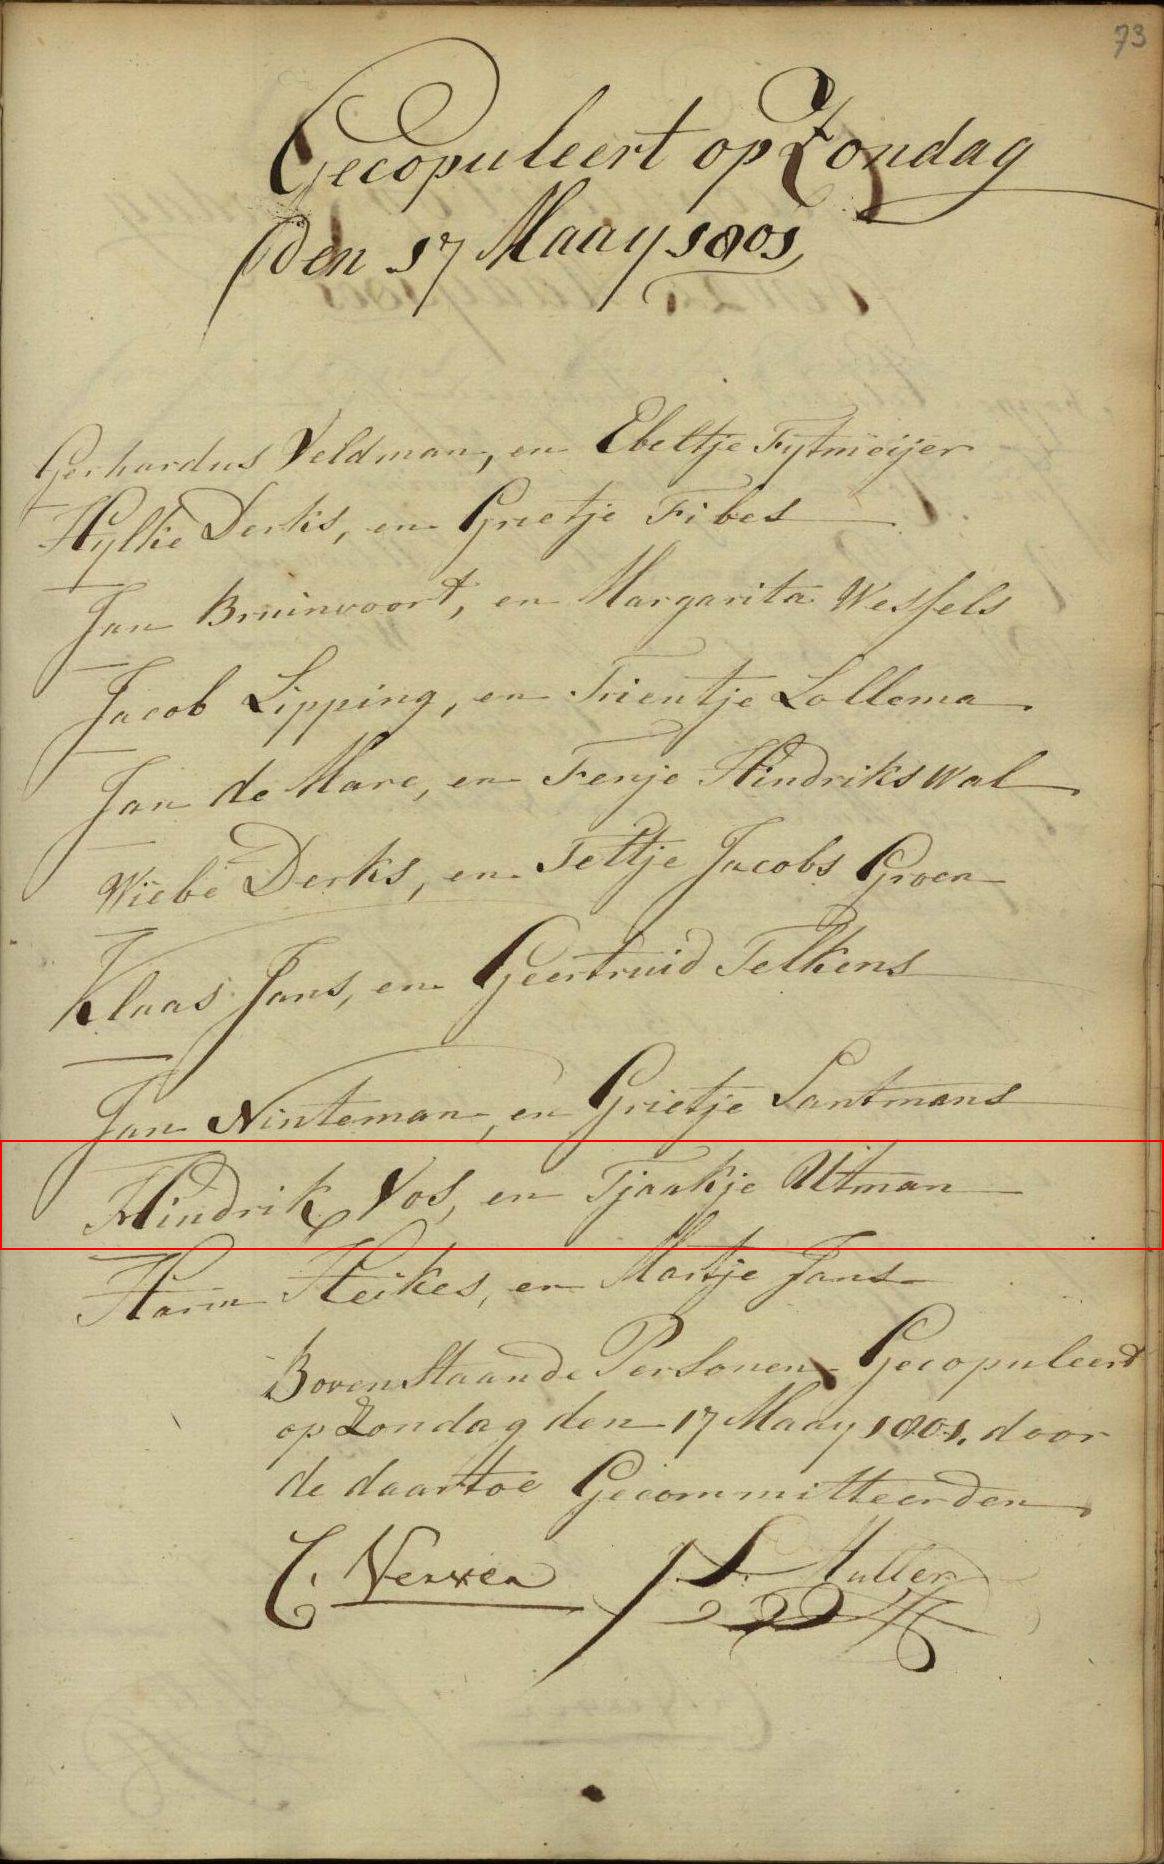 73
Gecopuleert op Zondag
den 17 Maay 1801,
Gerhardus Veldman, en Ebeltje Fijtmeijer
Hylke Derks, en Grietje Fibes
Jan Bruinvoort, en Margarita Wessels
Jacob Lipping, en Trientje Lollema
Jan de Mare, en Fenje Hindriks Wal
Wiebe Derks, en Teltje Jacobs Groen
Klaas Jans, en Geertruid Telkens
Jan Ninteman, en Grietje Santmans
Hindrik Vos, en Tjaakje Utman
Harm Heikes, en Martje Jans
Bovenstaande Personen Gecopuleert
op Zondag den 17 Maay 1801. door
de daartoe Gecommitteerden
C. Verver S. Muller